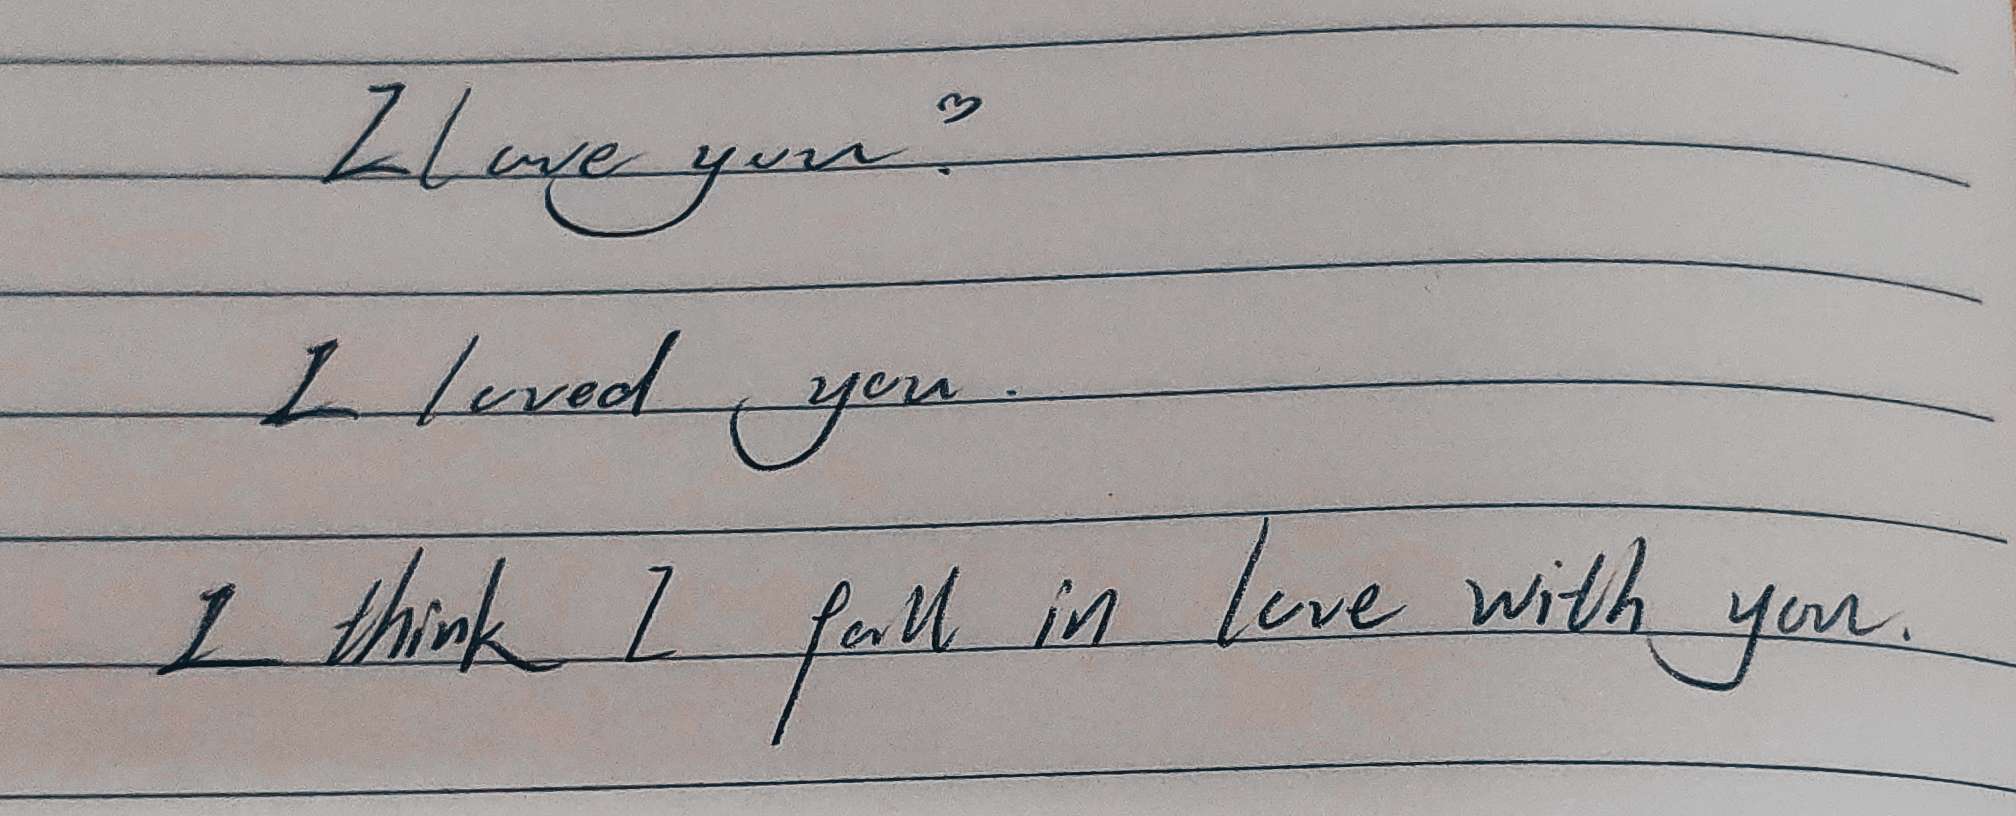 I love you.
I loved you.
I think I fall in love with you.